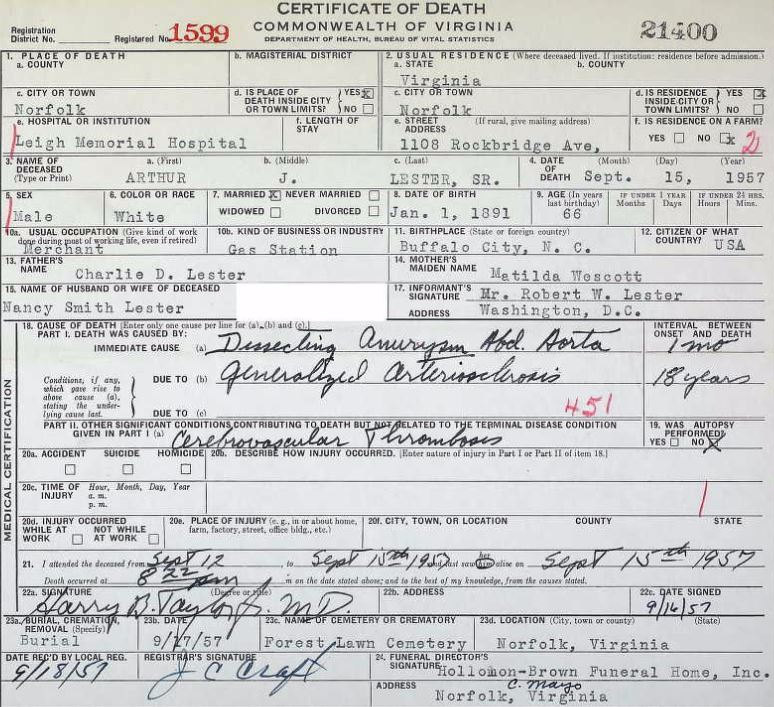 CERTIFICATE OF DEATH
COMMONWEALTH OF VIRGINIA
DEPARTMENT OF HEALTH, BUREAU OF VITAL STATISTICS
Registration District No. Registered No. 1599 21400
1. PLACE OF DEATH
a. COUNTY
b. MAGISTERIAL DISTRICT
2. USUAL RESIDENCE (Where deceased lived. If institution: residence before admission.)
a. STATE b. COUNTY
Virginia
c. CITY OR TOWN
Norfolk
d. IS PLACE OF DEATH INSIDE CITY OR TOWN LIMITS? YES X NO
c. CITY OR TOWN
Norfolk
d. IS RESIDENCE INSIDE CITY OR TOWN LIMITS? YES X NO
e. HOSPITAL OR INSTITUTION
Leigh Memorial Hospital
f. LENGTH OF STAY
e. STREET ADDRESS (If rural, give mailing address)
1108 Rockbridge Ave,
f. IS RESIDENCE ON A FARM?
YES NO X 2
3. NAME OF DECEASED (Type or Print)
a. (First) b. (Middle) c. (Last)
ARTHUR J. LESTER, SR.
4. DATE OF DEATH (Month) (Day) (Year)
Sept. 15, 1957
5. SEX
Male
6. COLOR OR RACE
White
7. MARRIED X NEVER MARRIED
WIDOWED DIVORCED
8. DATE OF BIRTH
Jan. 1, 1891
9. AGE (In years last birthday) IF UNDER 1 YEAR Months Days IF UNDER 24 HRS. Hours Min.
66
10a. USUAL OCCUPATION (Give kind of work done during most of working life, even if retired)
Merchant
10b. KIND OF BUSINESS OR INDUSTRY
Gas Station
11. BIRTHPLACE (State or foreign country)
Buffalo City, N. C.
12. CITIZEN OF WHAT COUNTRY? USA
13. FATHER'S NAME Charlie D. Lester
14. MOTHER'S MAIDEN NAME Matilda Wescott
15. NAME OF HUSBAND OR WIFE OF DECEASED
Nancy Smith Lester
17. INFORMANT'S SIGNATURE Mr. Robert W. Lester
ADDRESS Washington, D.C.
MEDICAL CERTIFICATION
18. CAUSE OF DEATH [Enter only one cause per line for (a), (b) and (c).]
PART I. DEATH WAS CAUSED BY:
IMMEDIATE CAUSE (a) Dissecting Aneurysm Abd. Aorta
INTERVAL BETWEEN ONSET AND DEATH
1 mo
Conditions, if any, which gave rise to above cause (a), stating the underlying cause last.
DUE TO (b) Generalized arteriosclerosis 18 years
DUE TO (c) 451
PART II. OTHER SIGNIFICANT CONDITIONS CONTRIBUTING TO DEATH BUT NOT RELATED TO THE TERMINAL DISEASE CONDITION GIVEN IN PART I (a)
Cerebrovascular Thrombosis
19. WAS AUTOPSY PERFORMED?
YES NO X
20a. ACCIDENT SUICIDE HOMICIDE
20b. DESCRIBE HOW INJURY OCCURRED. [Enter nature of injury in Part I or Part II of item 18.]
20c. TIME OF INJURY Hour, Month, Day, Year
a. m.
p. m.
20d. INJURY OCCURRED
WHILE AT WORK NOT WHILE AT WORK
20e. PLACE OF INJURY (e. g., in or about home, farm, factory, street, office bldg., etc.)
20f. CITY, TOWN, OR LOCATION COUNTY STATE
21. I attended the deceased from Sept 12 to Sept 15th 1957 and last saw him alive on Sept 15th 1957
Death occurred at 8 22 pm in on the date stated above; and to the best of my knowledge, from the causes stated.
22a. SIGNATURE (Degree or title)
Harry B. Taylor Jr. M.D.
22b. ADDRESS
22c. DATE SIGNED
9/16/57
23a. BURIAL, CREMATION, REMOVAL (Specify)
Burial
23b. DATE
9/17/57
23c. NAME OF CEMETERY OR CREMATORY
Forest Lawn Cemetery
23d. LOCATION (City, town or county) (State)
Norfolk, Virginia
DATE REC'D BY LOCAL REG.
9/18/57
REGISTRAR'S SIGNATURE
J C Craft
24. FUNERAL DIRECTOR'S SIGNATURE Hollomon-Brown Funeral Home, Inc.
C. Mayo
ADDRESS Norfolk, Virginia